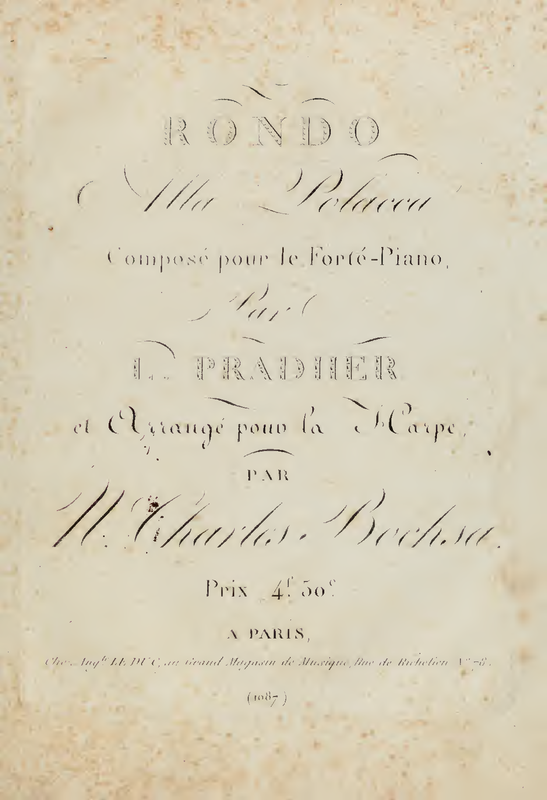 RONDO
Alla Polacca
Composé pour le Forté-Piano,
Par
L. PRADHER
et Arrangé pour la Harpe,
PAR
N. Charles Bochsa.
Prix 4f. 50c.
A PARIS,
Chez Augte. LE DUC, au Grand Magasin de Musique, Rue de Richelieu No. 78.
(1087)